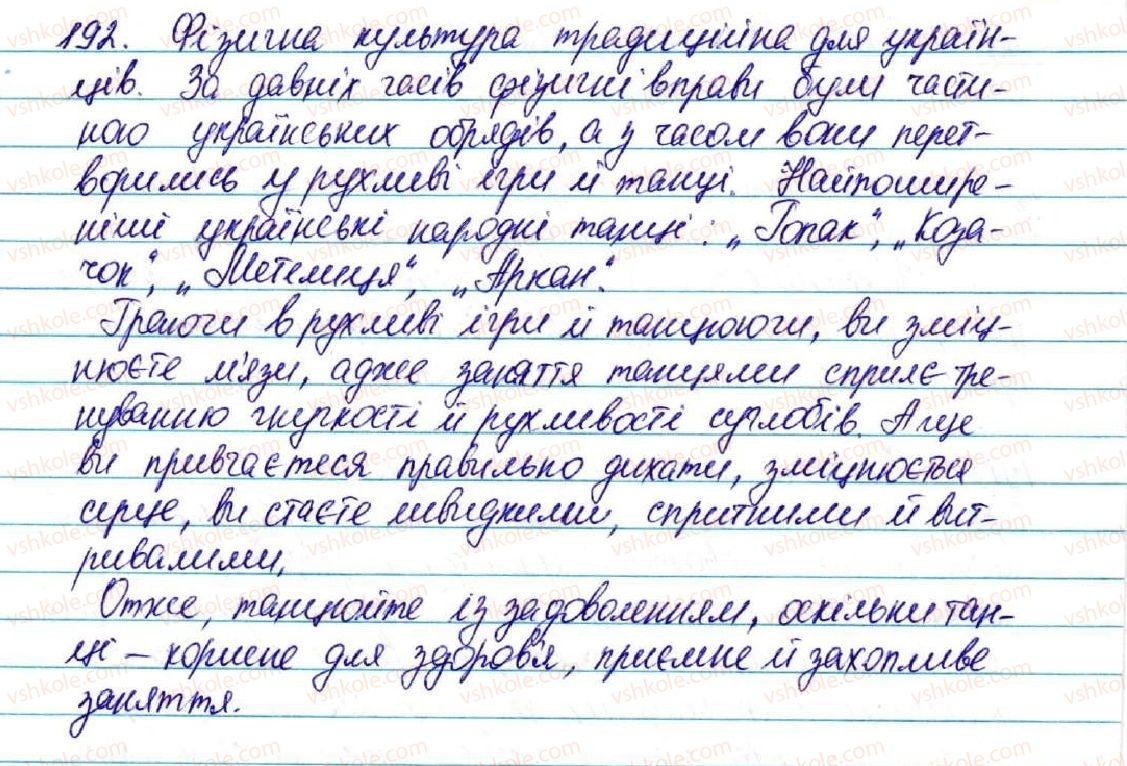 192. Фізична культура традиційна для україн-
ців. За давніх часів фізичні вправи були части-
ною українських обрядів, а з часом вони перет-
ворились у рухливі ігри й танці. Найпошире-
ніші українські народні танці: „Гопак", „Коза-
чок", „Метелиця", „Аркан".
Граючи в рухливі ігри й танцюючи, ви зміц-
нюєте м'язи, адже заняття танцями сприяє тре-
нуванню гнучкості й рухливості суглобів. А ще
ви привчаєтеся правильно дихати, зміцнюється
серце, ви стаєте швидкими, спритними й вит-
ривалими.
Отже, танцюйте із задоволенням, оскільки тан-
ці – корисне для здоров'я, приємне й захопливе
заняття.